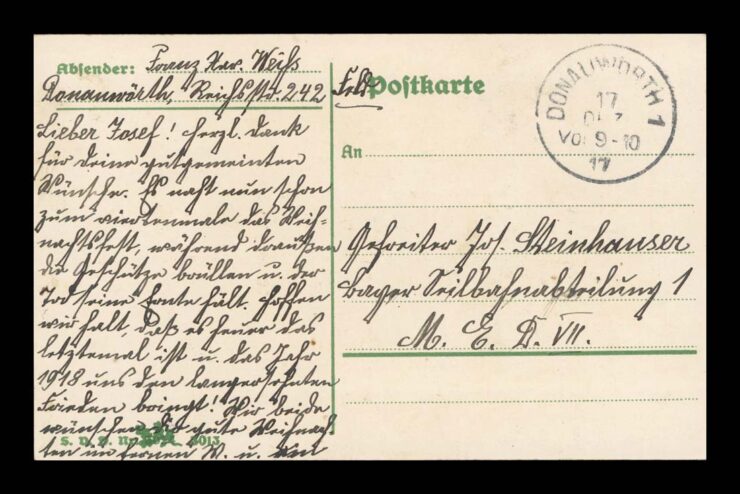 Absender: Franz Xav. Weiß
Donauwörth, Reichsstr. 242
Lieber Josef! Herzl. Dank
für Deine gutgemeinten
Wünsche. Es naht nun schon
zum viertenmale das Weih-
nachtsfest, während draußen
die Geschütze brüllen u. der
Tod seine Ernte hält. Hoffen
wir halt, daß es heuer das
letztemal ist u. das Jahr
1918 uns den langersehnten
Frieden bringt! Wir beide
wünschen Dir gute Weihnach-
ten im fernen W. u. ein
S. V. D. N. 3013
Feldpostkarte
DONAUWÖRTH 1
17
DEZ
VO 9-10
17
An
Gefreiter Jos. Steinhauser
bayer Seilbahnabteilung 1
M. E. D. VII.